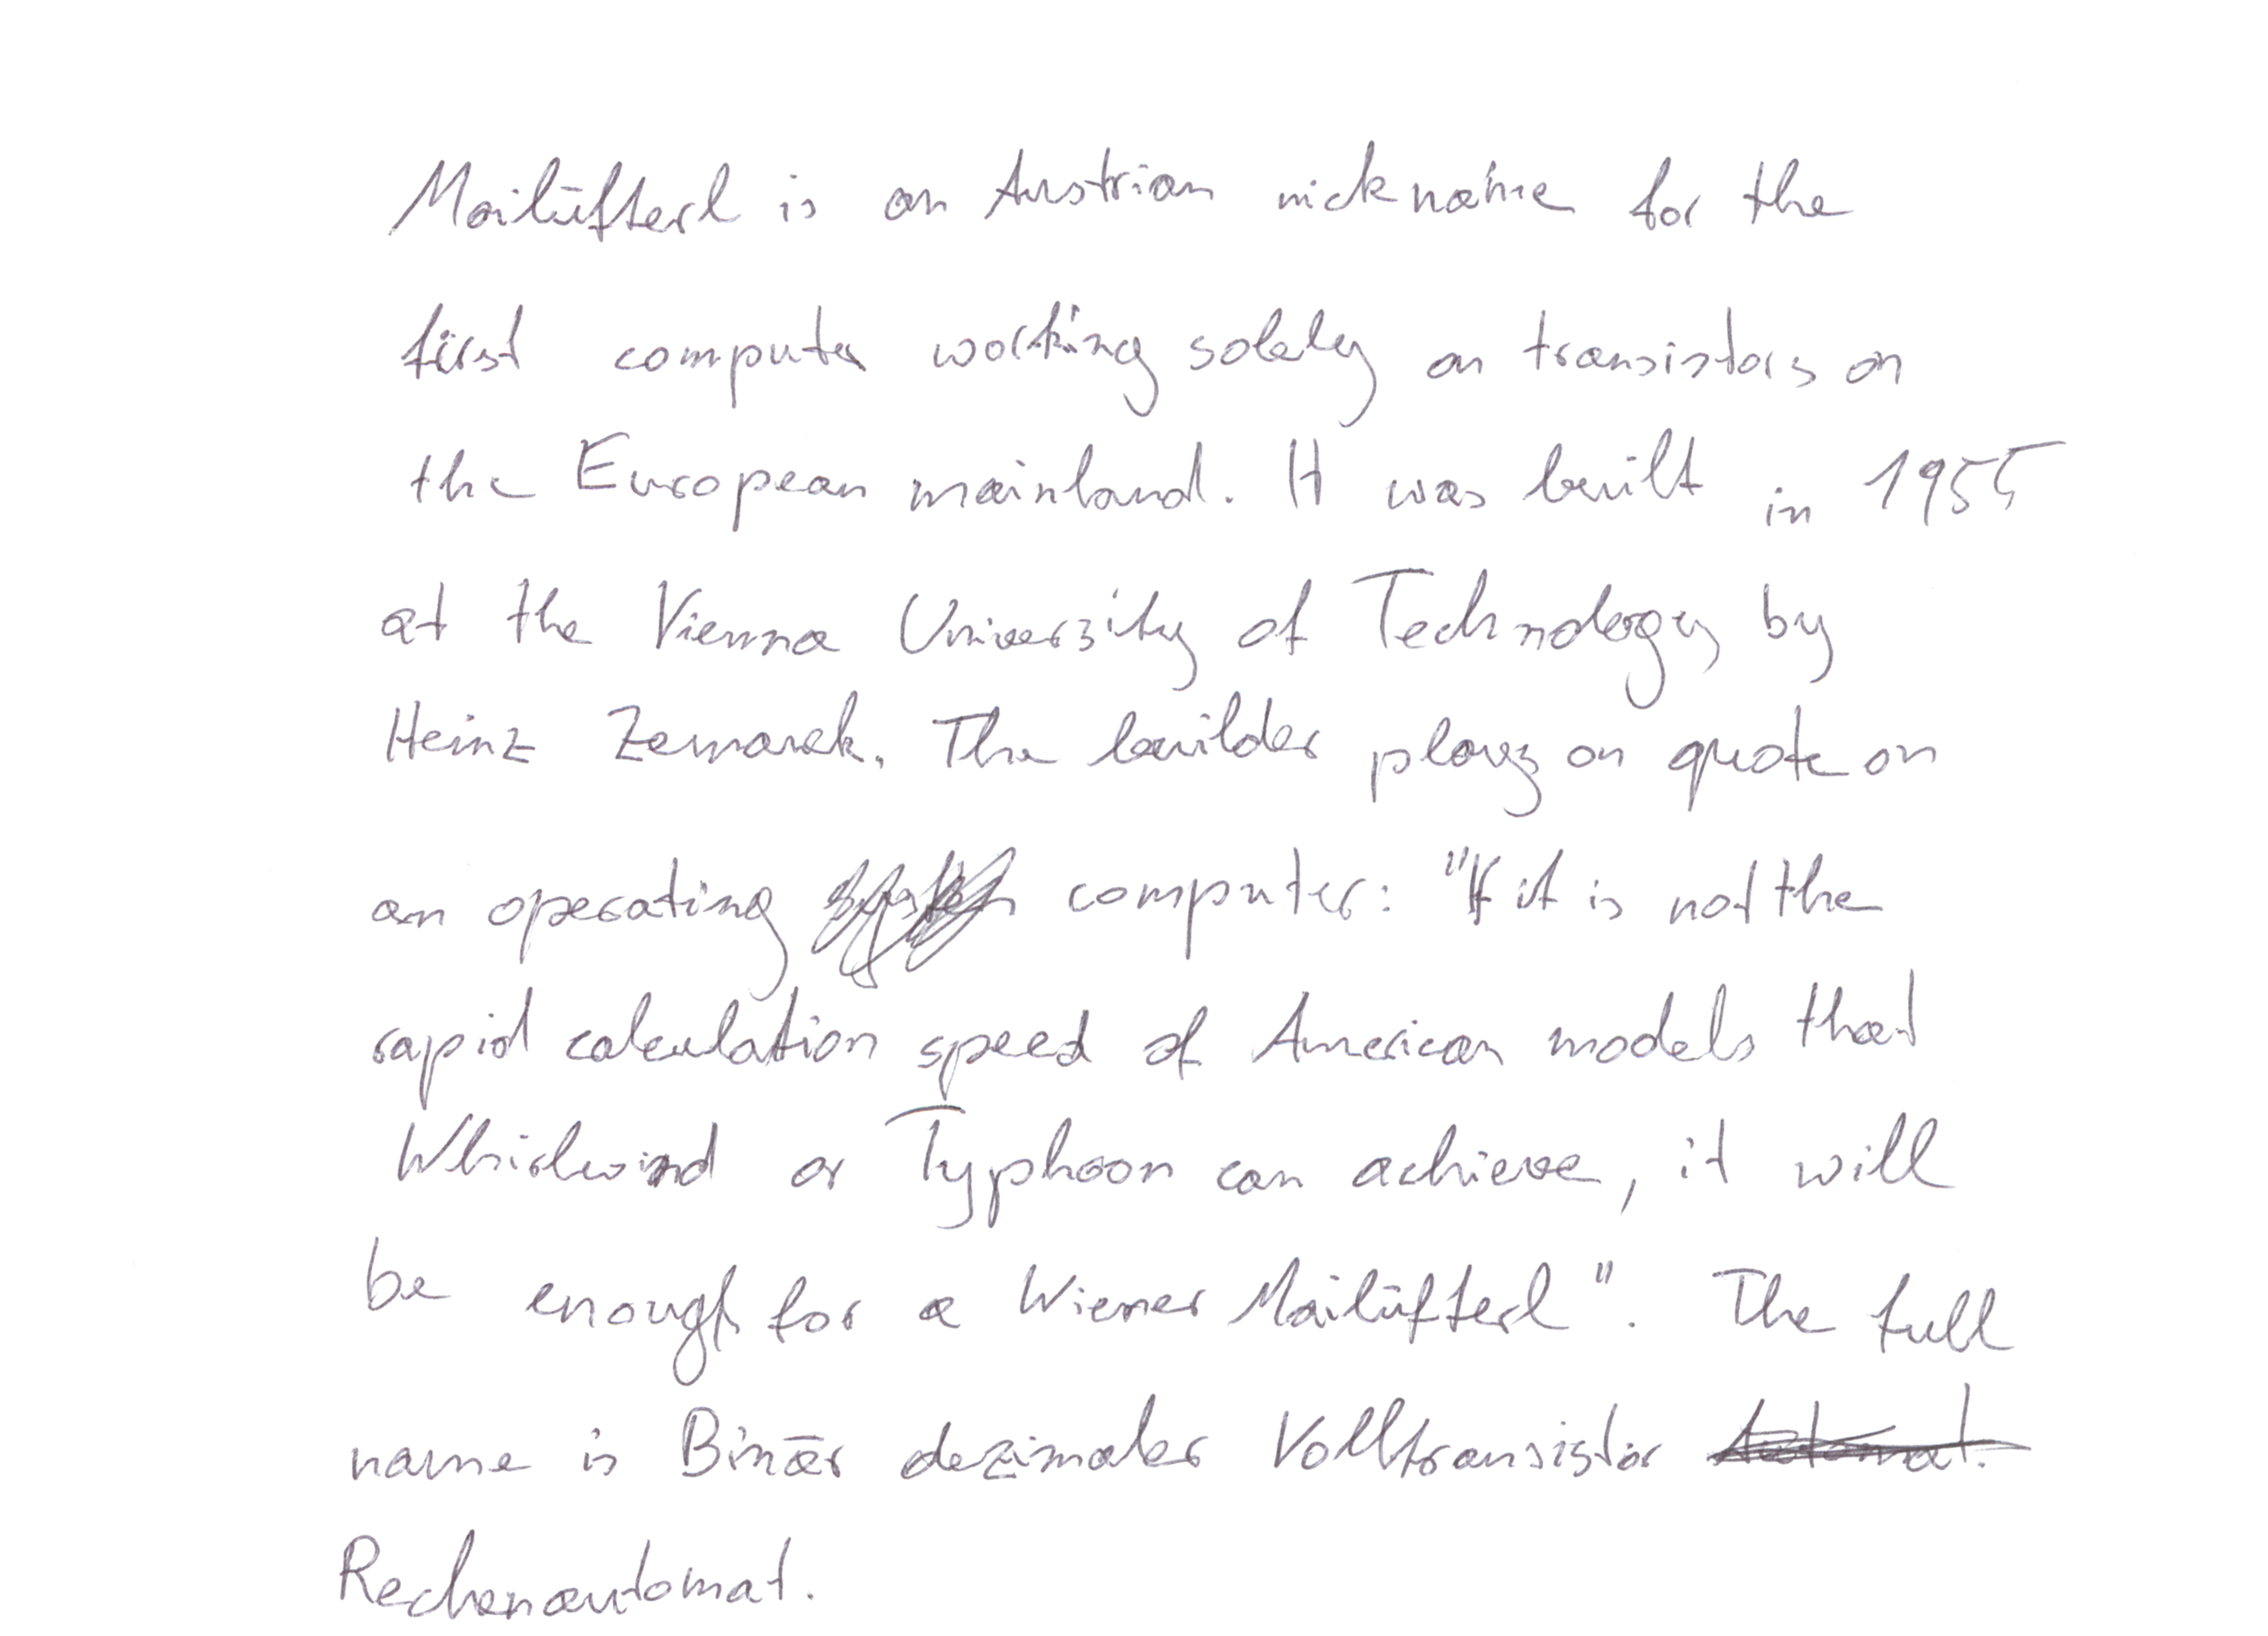 Mailüfterl is an Austrian nickname for the
first computer working solely on transistors on
the European mainland. It was built in 1955
at the Vienna University of Technology by
Heinz Zemanek. The builder plays on quote on
an operating computer: "If it is not the
rapid calculation speed of American models that
Whirlwind or Typhoon can achieve, it will
be enough for a Wiener Mailüfterl". The full
name is Binär dezimaler Volltransistor
Rechenautomat.